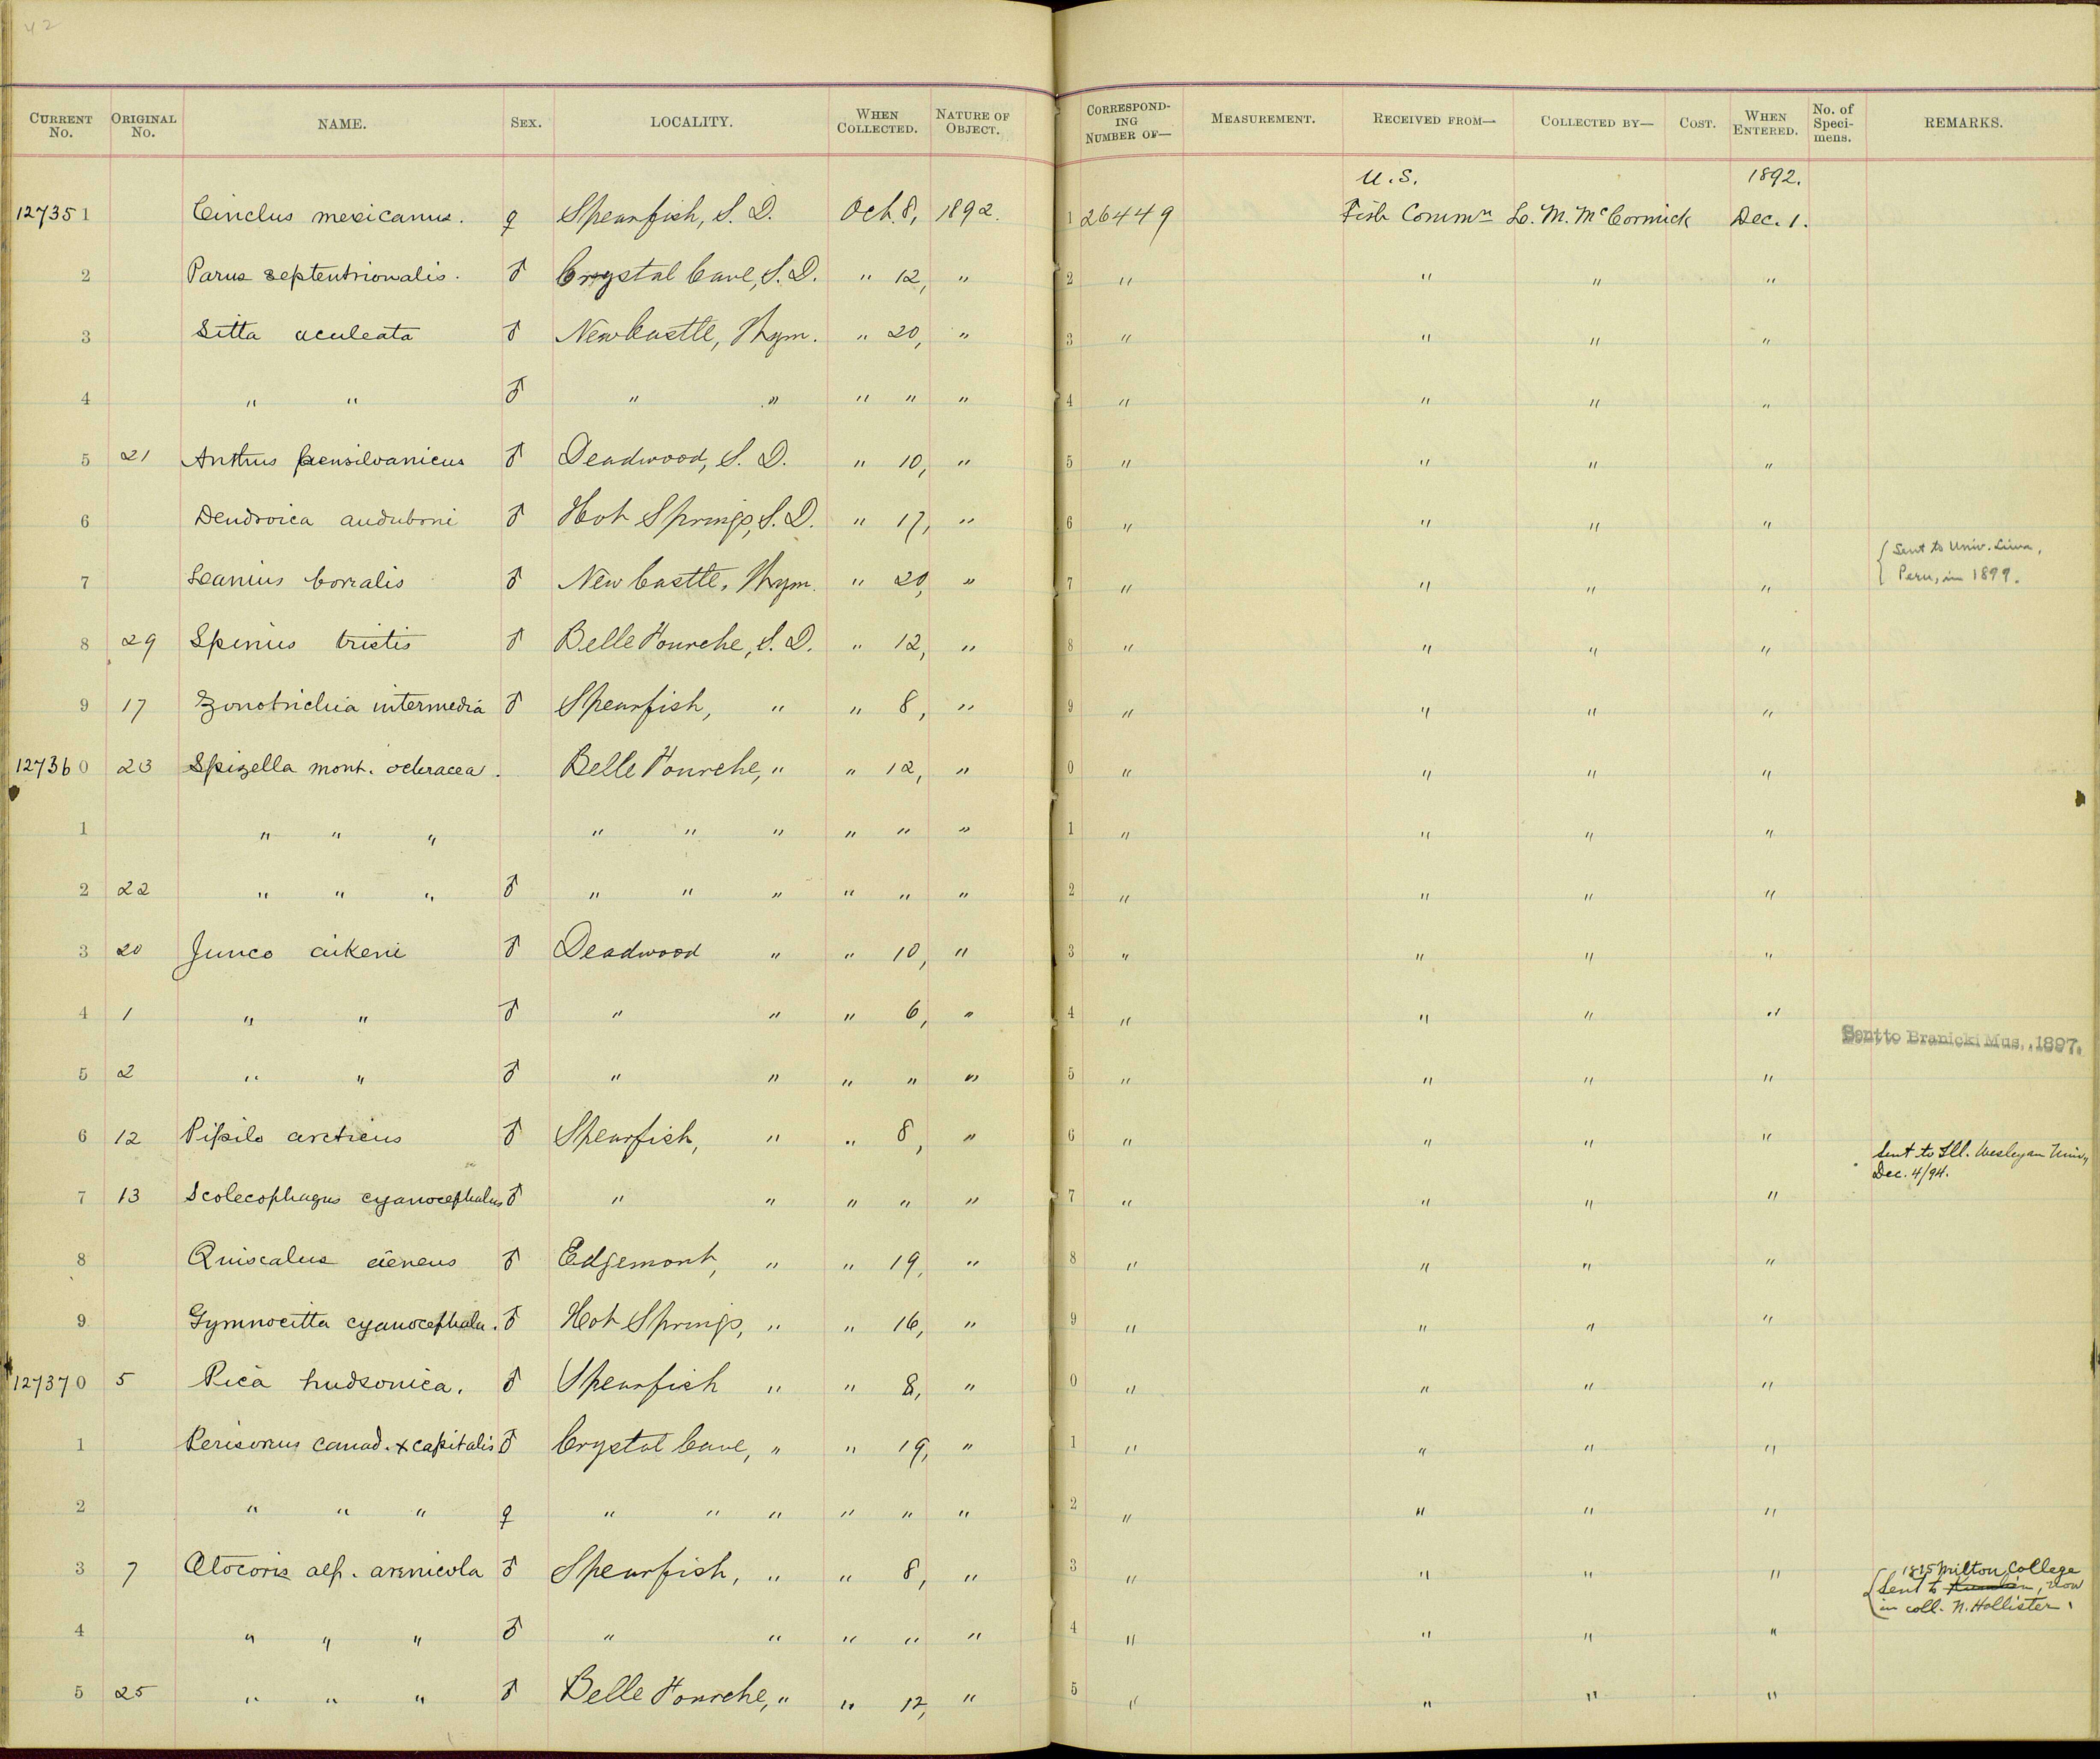 42
CURRENT No. ORIGINAL No. NAME. SEX. LOCALITY. WHEN COLLECTED. NATURE OF OBJECT. CORRESPONDING NUMBER OF— MEASUREMENT. RECEIVED FROM— COLLECTED BY— COST. WHEN ENTERED. No. of Specimens. REMARKS.
U.S. 1892.
127351 Cinclus mexicanus. ♀ Spearfish, S. D. Oct. 8, 1892. 1 26449 Fish Commn L. M. McCormick Dec. 1.
2 Parus septentrionalis. ♂ Crystal Cave, S. D. " 12, " 2 " " " "
3 Sitta aculeata ♂ New Castle, Wym. " 20, " 3 " " " "
4 " " ♂ " " " " " 4 " " " "
5 21 Anthus pensilvanicus ♂ Deadwood, S. D. " 10, " 5 " " " "
6 Dendroica auduboni ♂ Hot Springs, S. D. " 17, " 6 " " " "
7 Lanius borealis ♂ New Castle, Wym. " 20, " 7 " " " " { Sent to Univ. Lima,
Peru, in 1899.
8 29 Spinus tristis ♂ Belle Fourche, S. D. " 12, " 8 " " " "
9 17 Zonotrichia intermedia ♂ Spearfish, " " 8, " 9 " " " "
127360 23 Spizella mont. ochracea. Belle Fourche, " " 12, " 0 " " " "
1 " " " " " " " " " 1 " " " "
2 22 " " " ♂ " " " " " " 2 " " " "
3 20 Junco aikeni ♂ Deadwood " " 10, " 3 " " " "
4 1 " " ♂ " " " 6, " 4 " " " "
Sent to Branicki Mus. 1897.
5 2 " " ♂ " " " " " 5 " " " "
6 12 Pipilo arcticus ♂ Spearfish, " " 8, " 6 " " " "
Sent to Ill. Wesleyan Univ,
Dec. 4/94.
7 13 Scolecophagus cyanocephalus ♂ " " " " " 7 " " " "
8 Quiscalus aeneus ♂ Edgemont, " " 19, " 8 " " " "
9 Gymnocitta cyanocephala. ♂ Hot Springs, " " 16, " 9 " " " "
127370 5 Pica hudsonica. ♂ Spearfish " " 8, " 0 " " " "
1 Perisorus canad. x capitalis ♂ Crystal Cave, " " 19, " 1 " " " "
2 " " " ♀ " " " " " " 2 " " " "
3 7 Otocoris alp. arenicola ♂ Spearfish, " " 8, " 3 " " " "
Milton College
{ Sent to Kumlien, now
in coll. N. Hollister.
4 " " " ♂ " " " " " 4 " " " "
5 25 " " " ♂ Belle Fourche, " " 12, " 5 " " " "